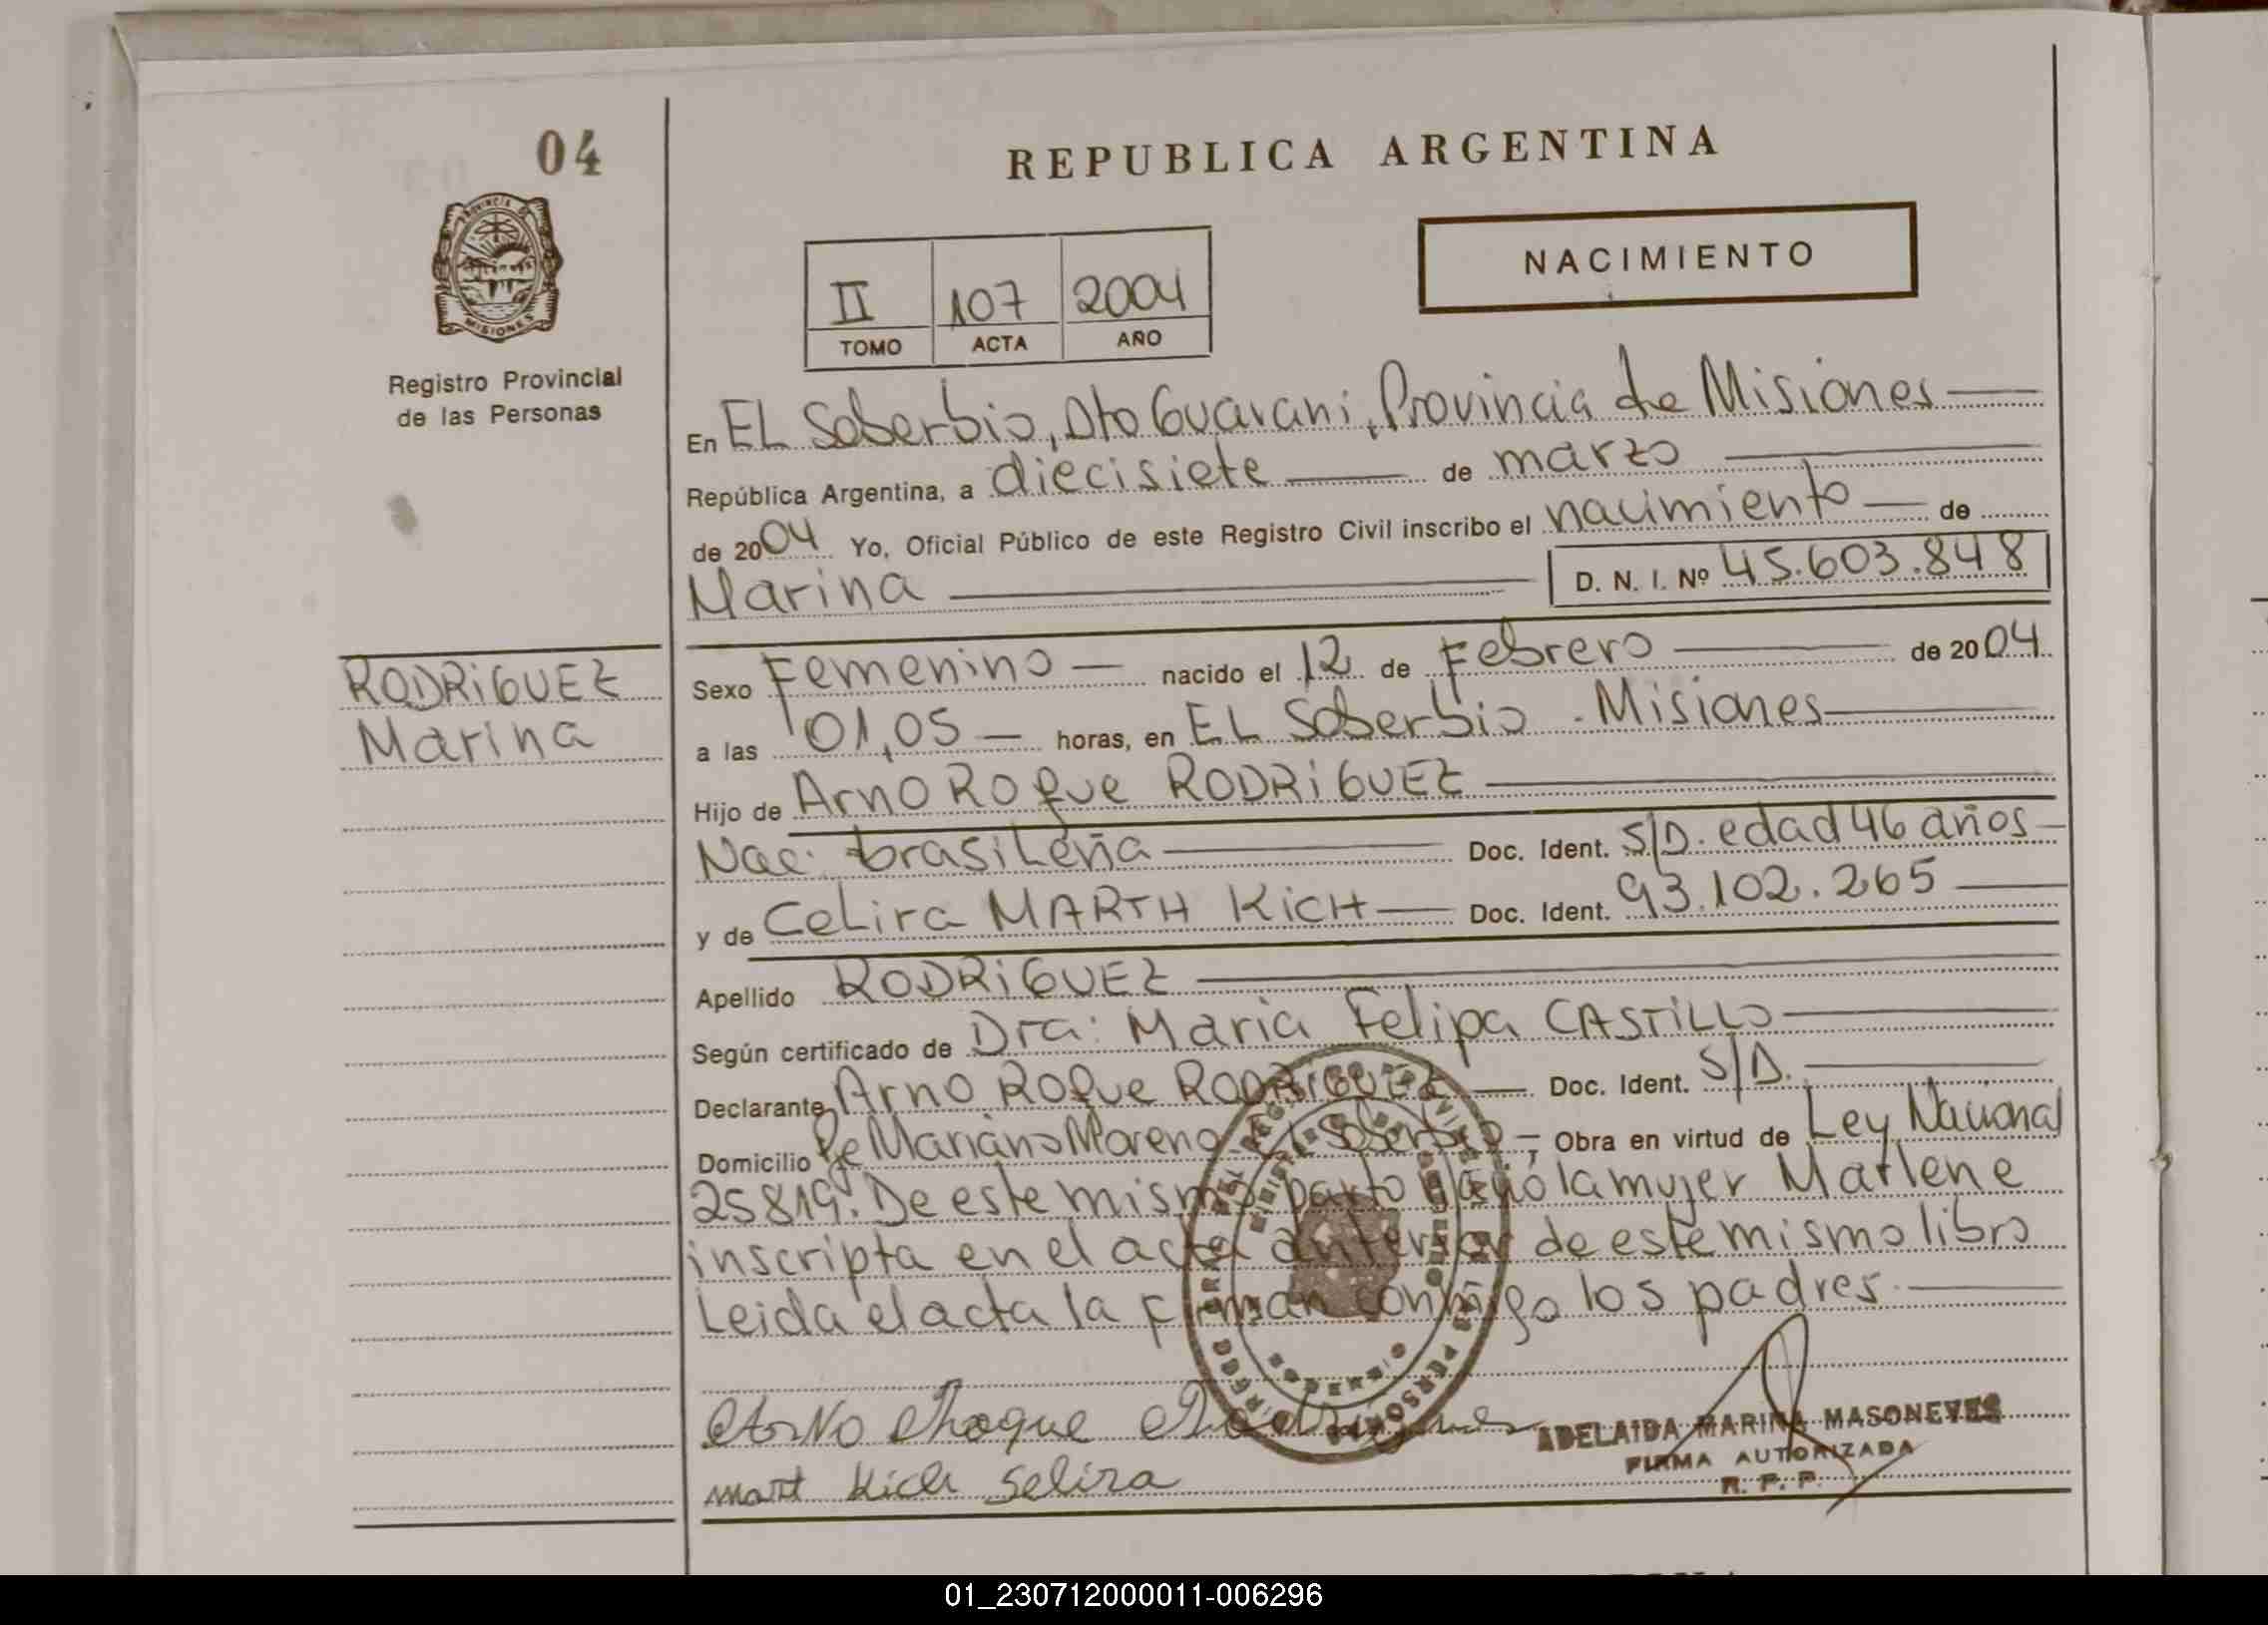 04
REPUBLICA ARGENTINA
PROVINCIA DE
MISIONES
Registro Provincial
de las Personas
II 107 2004
TOMO ACTA AÑO
NACIMIENTO
En EL Soberbio, Dto Guarani, Provincia de Misiones
República Argentina, a diecisiete de marzo
de 2004 Yo, Oficial Público de este Registro Civil inscribo el nacimiento de
Marina D. N. I. Nº 45.603.848
RODRiGUEZ
Marina
Sexo Femenino nacido el 12 de Febrero de 2004
a las 01,05 horas, en EL Soberbio - Misiones
Hijo de Arno Roque RODRiGUEZ
Nac: brasileña Doc. Ident. S/D. edad 46 años
y de Celira MARTH KiCH Doc. Ident. 93.102.265
Apellido RODRiGUEZ
Según certificado de Dra: Maria Felipa CASTiLLO
Declarante Arno Roque RODRiGUEZ Doc. Ident. S/D.
Domicilio Mariano Moreno El Soberbio, Obra en virtud de Ley Nacional
25819. De este mismo parto nació la mujer Marlene
inscripta en el acta anterior de este mismo libro
Leida el acta la firman conmigo los padres.
Arno Rhoque Rodrigues
Mart Kich Selira
ADELAIDA MARINA MASONEVES
FIRMA AUTORIZADA
R. P. P.
01_230712000011-006296